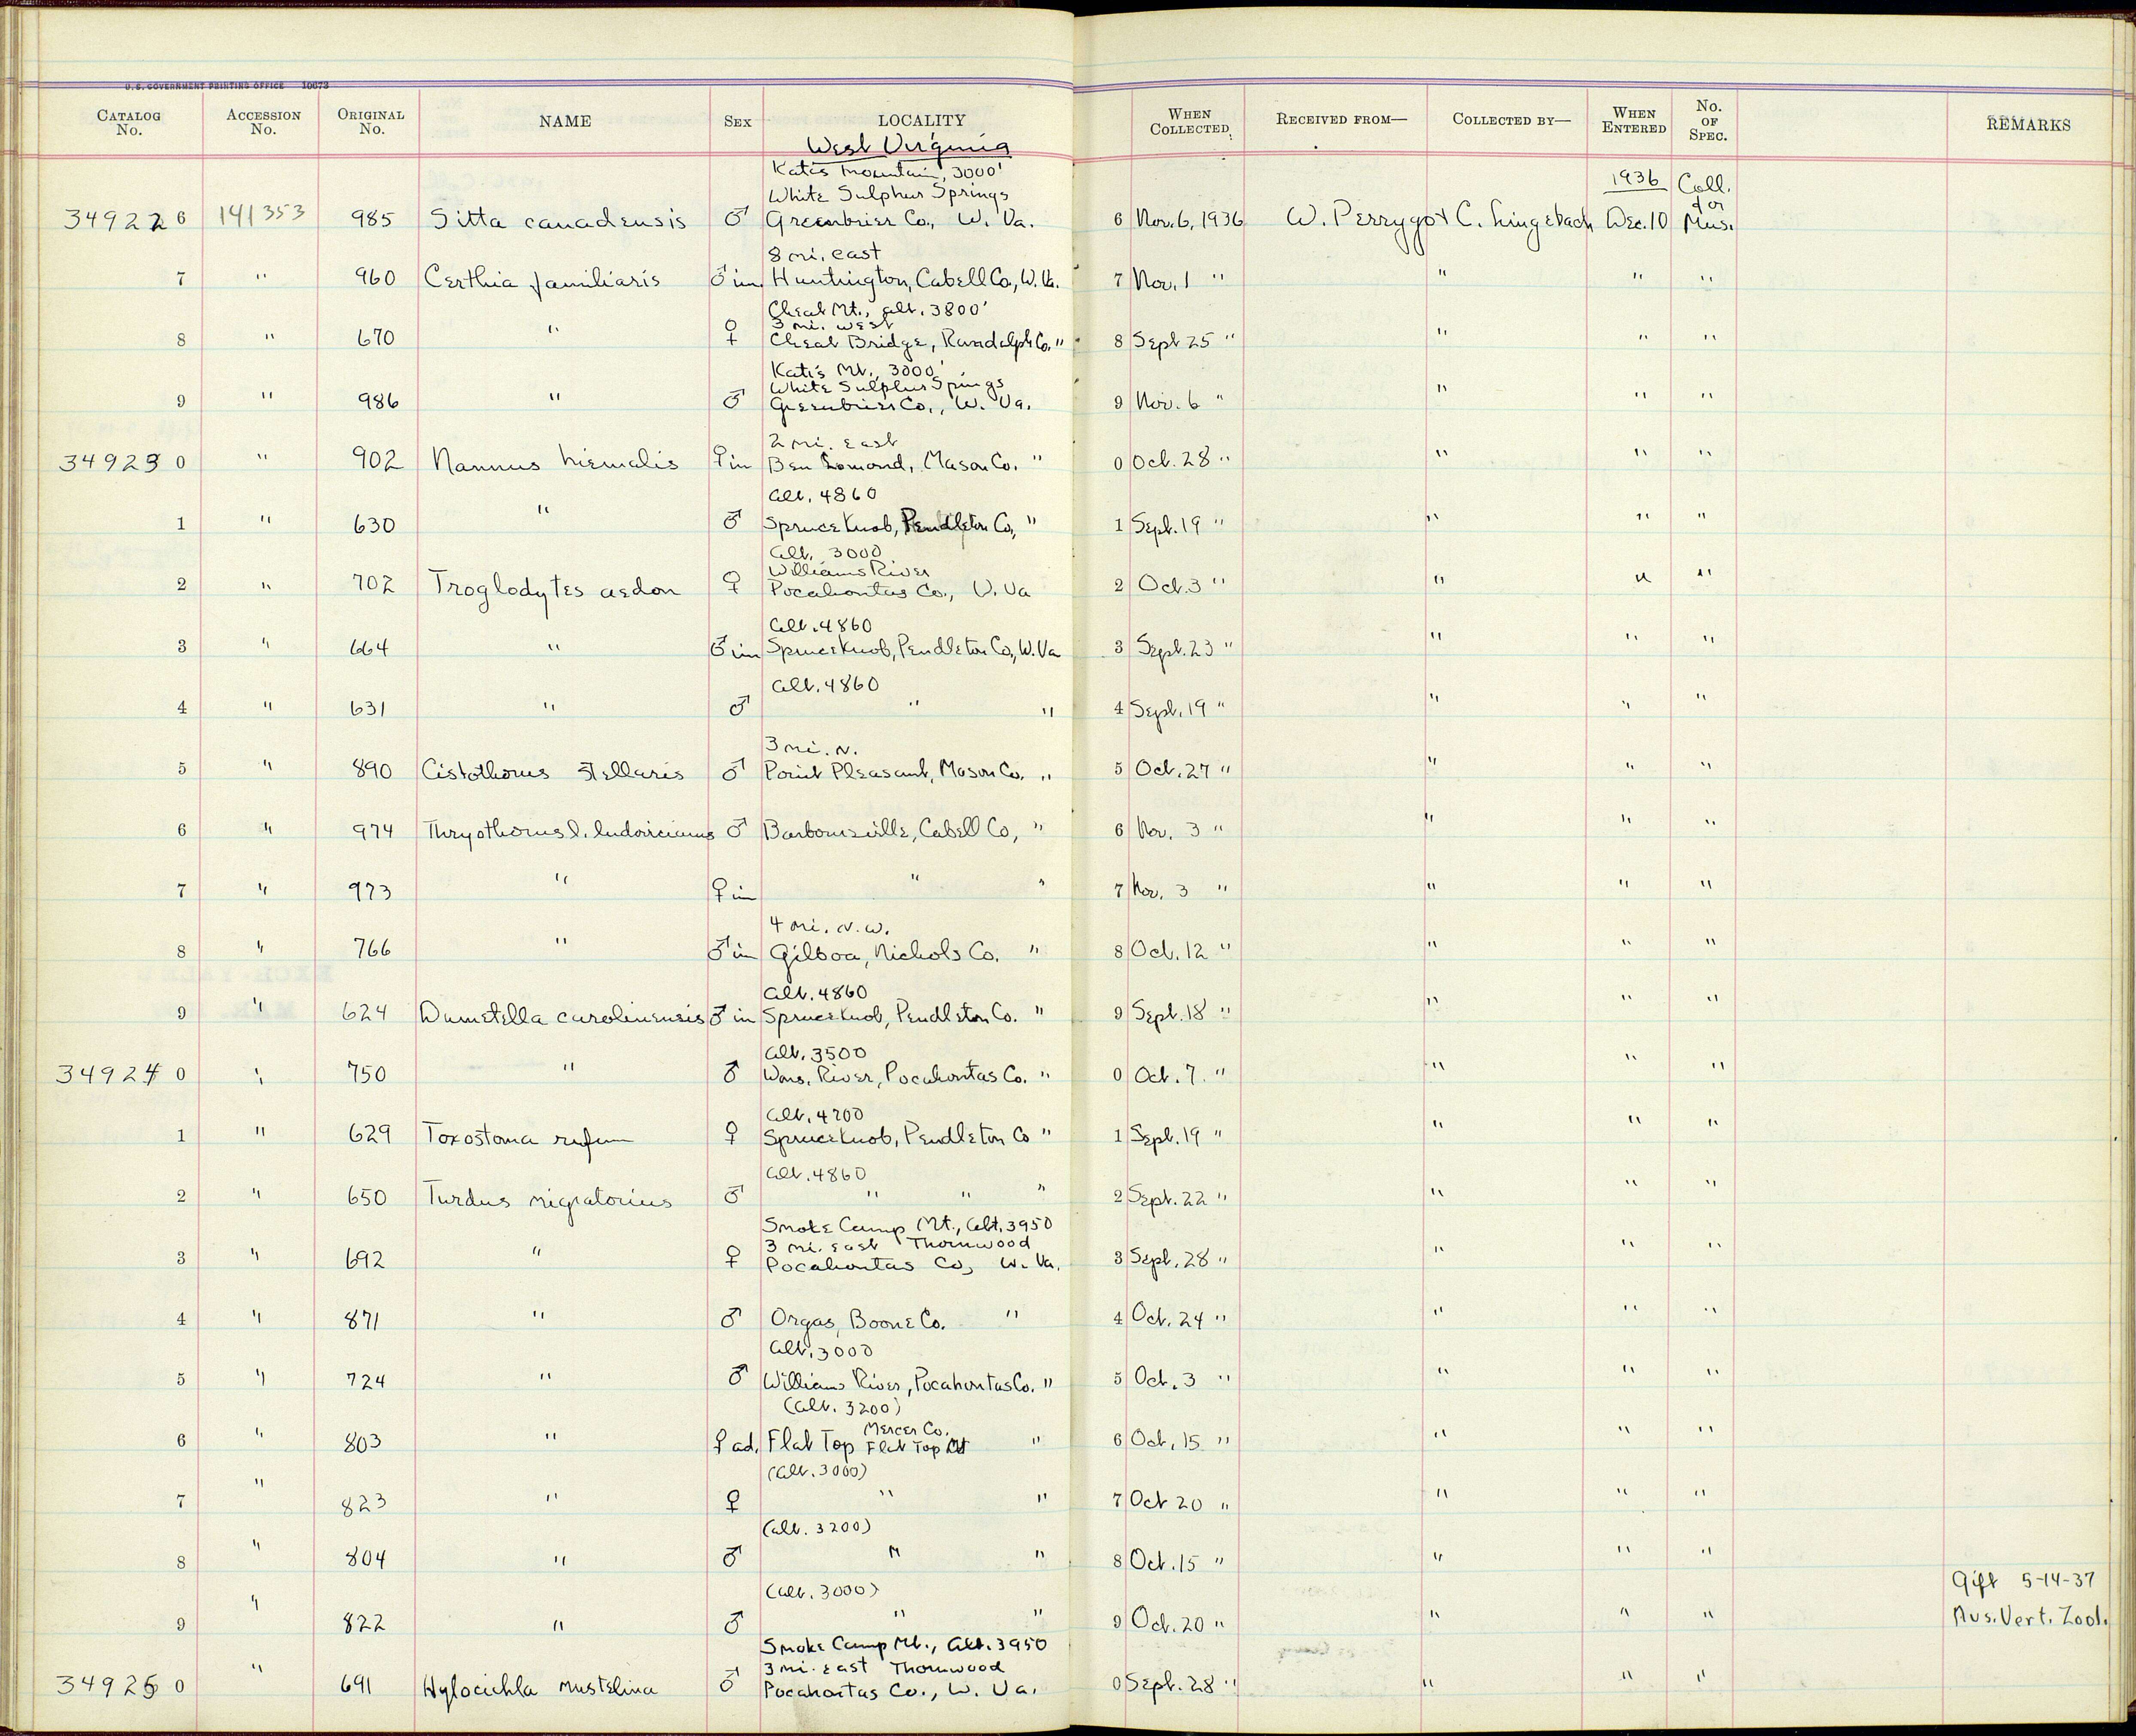 U.S. GOVERNMENT PRINTING OFFICE 10073
CATALOG No. ACCESSION No. ORIGINAL No. NAME SEX LOCALITY WHEN COLLECTED RECEIVED FROM— COLLECTED BY— WHEN ENTERED No. OF SPEC. REMARKS
West Virginia
Kate's Mountain, 3000'
White Sulphur Springs 1936 Coll. for
349226 141353 985 Sitta canadensis ♂ Greenbrier Co., W. Va. 6 Nov. 6, 1936 W. Perrygo + C. Lingebach Dec. 10 Mus.
8 mi. east
7 " 960 Certhia familiaris ♂ im Huntington, Cabell Co., W. Va. 7 Nov. 1 " " " "
Cheat Mt., alt. 3800'
3 mi. west
8 " 670 " ♀ Cheat Bridge, Randolph Co. " 8 Sept 25 " " " "
Kate's Mt., 3000'
White Sulphur Springs
9 " 986 " ♂ Greenbrier Co., W. Va. 9 Nov. 6 " " " "
2 mi. east
349230 " 902 Nannus hiemalis ♀ im Ben Lomond, Mason Co. " 0 Oct. 28 " " " "
Alt. 4860
1 " 630 " ♂ Spruce Knob, Pendleton Co, " 1 Sept. 19 " " " "
Alt. 3000
Williams River
2 " 702 Troglodytes aedon ♀ Pocahontas Co., W. Va 2 Oct. 3 " " " "
Alt. 4860
3 " 664 " ♂ im Spruce Knob, Pendleton Co., W. Va 3 Sept. 23 " " " "
Alt. 4860
4 " 631 " ♂ " " 4 Sept. 19 " " " "
3 mi. N.
5 " 890 Cistothorus stellaris ♂ Point Pleasant, Mason Co. " 5 Oct. 27 " " " "
6 " 974 Thryothorus l. ludovicianus ♂ Barboursville, Cabell Co, " 6 Nov. 3 " " " "
7 " 973 " ♀ im " " 7 Nov. 3 " " " "
4 mi. N.W.
8 " 766 " ♂ im Gilboa, Nichols Co. " 8 Oct. 12 " " " "
Alt. 4860
9 " 624 Dumetella carolinensis ♂ im Spruce Knob, Pendleton Co. " 9 Sept. 18 " " " "
Alt. 3500
349240 " 750 " ♂ Wms. River, Pocahontas Co. " 0 Oct. 7. " " " "
Alt. 4700
1 " 629 Toxostoma rufum ♀ Spruce Knob, Pendleton Co " 1 Sept. 19 " " " "
Alt. 4860
2 " 650 Turdus migratorius ♂ " " " 2 Sept. 22 " " " "
Smoke Camp Mt., Alt. 3950
3 mi. east Thornwood
3 " 692 " ♀ Pocahontas Co, W. Va. 3 Sept. 28 " " " "
4 " 871 " ♂ Orgas, Boone Co. " 4 Oct. 24 " " " "
Alt. 3000
5 " 724 " ♂ Williams River, Pocahontas Co. " 5 Oct. 3 " " " "
(Alt. 3200)
Mercer Co.
6 " 803 " ♀ ad. Flat Top Flat Top Mt " 6 Oct. 15 " " " "
(Alt. 3000)
7 " 823 " ♀ " " 7 Oct 20 " " " "
(Alt. 3200)
8 " 804 " ♂ " " 8 Oct. 15 " " " "
(Alt. 3000) Gift 5-14-37
9 " 822 " ♂ " " 9 Oct. 20 " " " " Mus. Vert. Zool.
Smoke Camp Mt., Alt. 3950
3 mi. east Thornwood
349250 " 691 Hylocichla mustelina ♂ Pocahontas Co., W. Va. 0 Sept. 28 " " " "